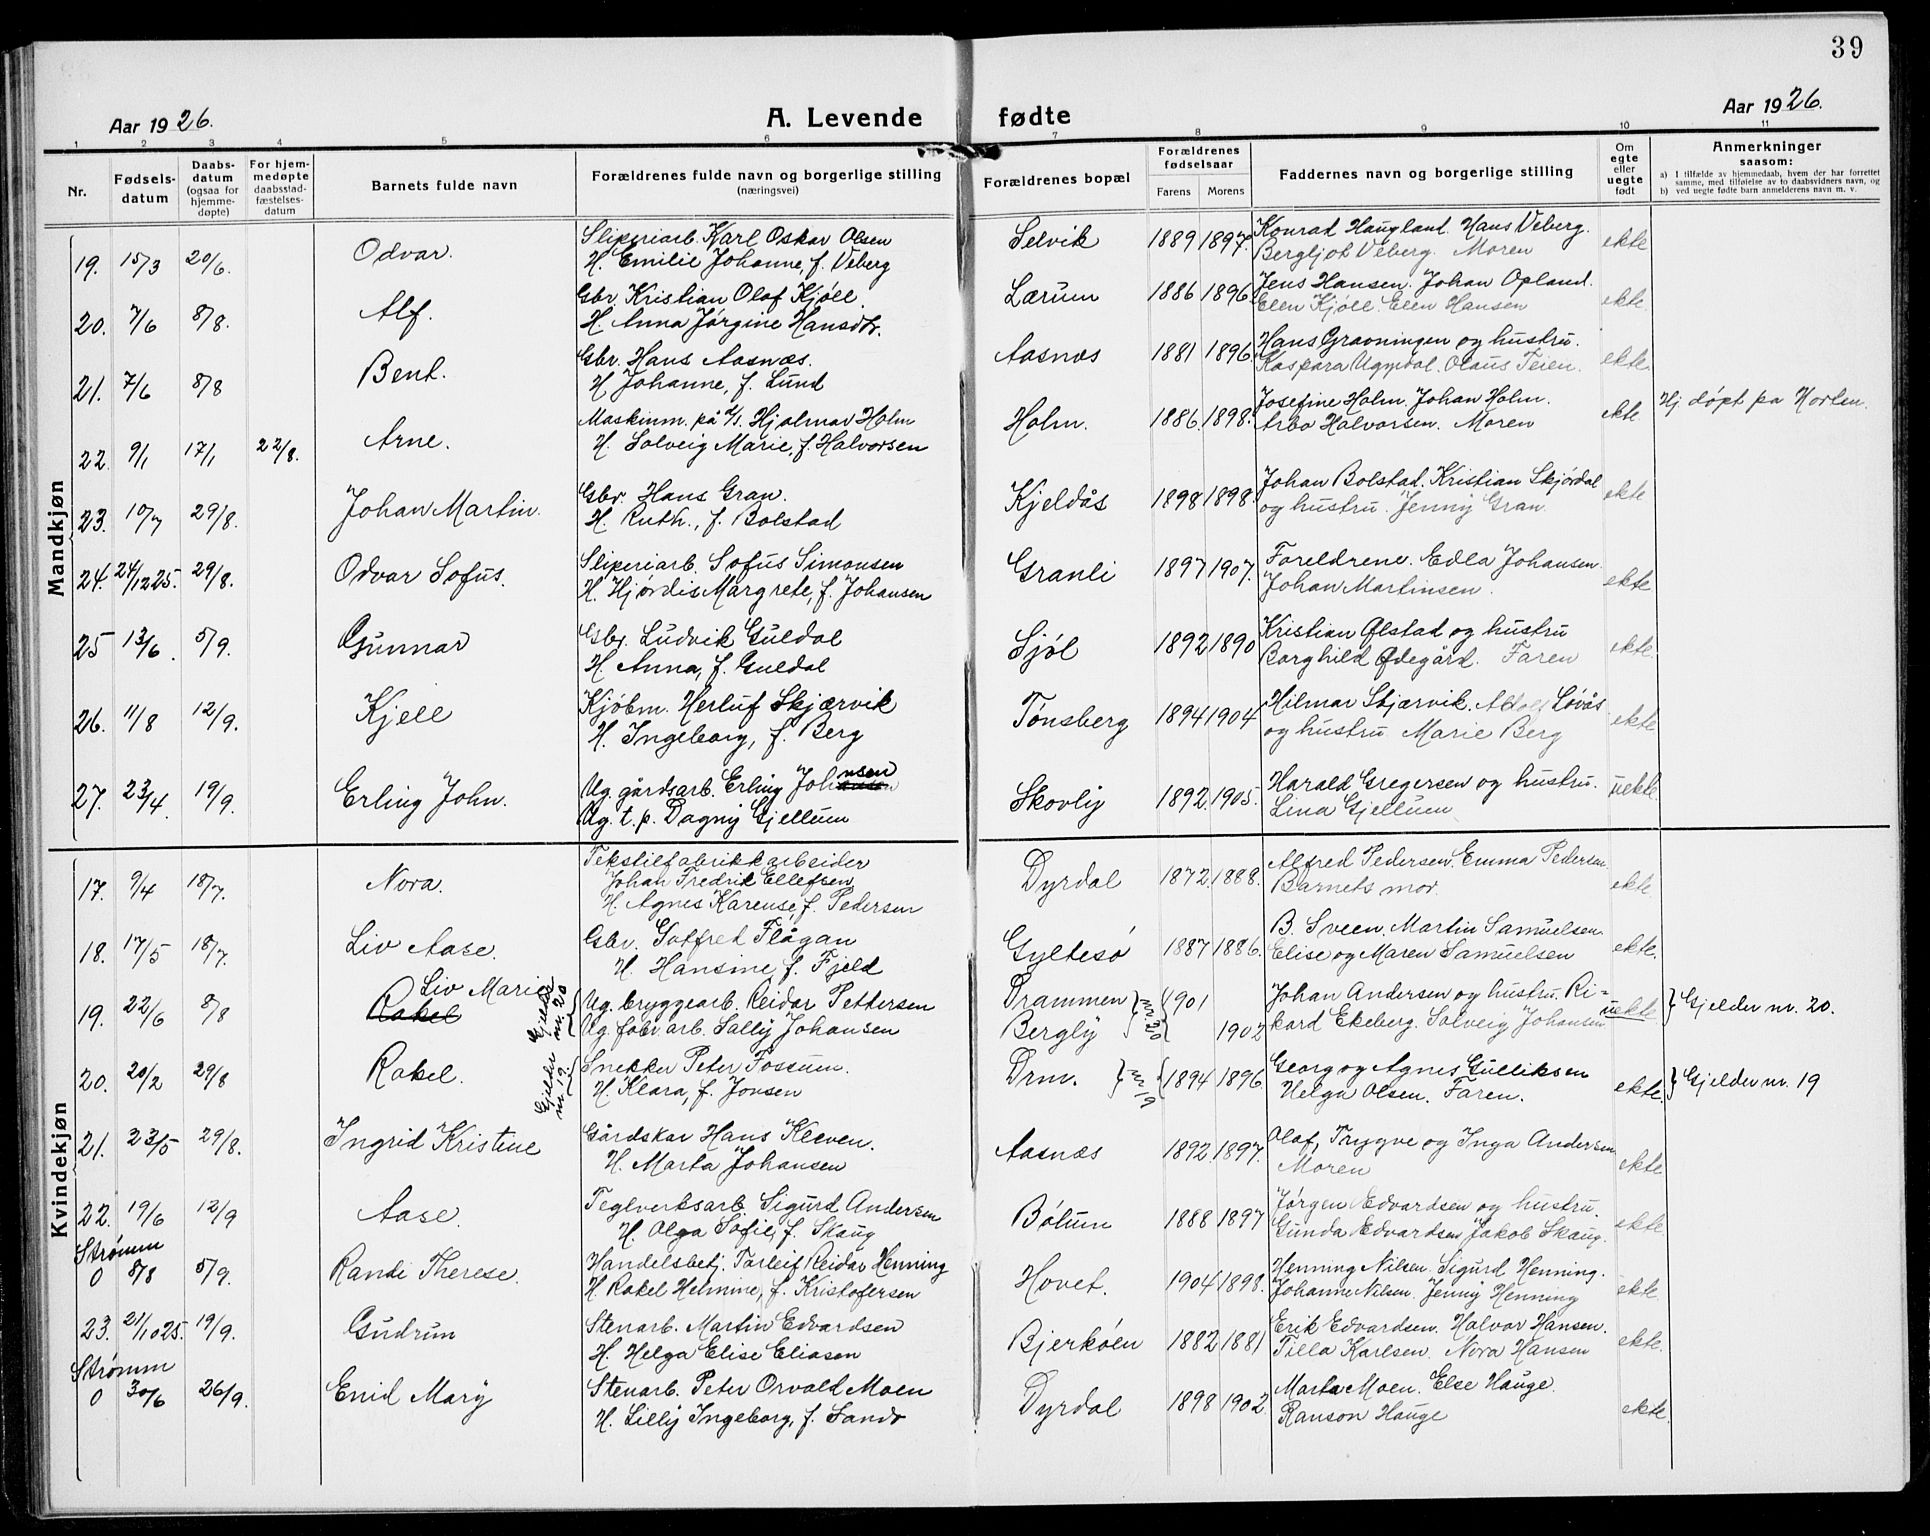 39
Aar 1926. A. Levende fødte Aar 1926.
1 2 3 4 5 6 7 8 9 10 11
Nr. Fødsels-datum Daabs-datum (ogsaa for hjemme-døpte) For hjem-medøpte daabsstad-fæstelses-datum Barnets fulde navn Forældrenes fulde navn og borgerlige stilling (næringsvei) Forældrenes bopæl Forældrenes fødselsaar Farens Morens Faddernes navn og borgerlige stilling Om egte eller uegte født Anmerkninger saasom:
a) I tilfælde av hjemmedaab, hvem der har forrettet samme, med tilføielse av to daabsvidners navn, og
b) ved uegte fødte barn anmelderens navn m. v.
Mandkjøn
19. 15/3 20/6. Odvar. Sliperiarb. Karl Oskar Olsen Selvik 1889 1897. Konrad Haugland. Hans Veberg. ekte
H. Emilie Johanne, f. Veberg Bergljot Veberg. Moren
20. 7/6 8/8. Alf. Gbr. Kristian Olaf Kjøll. Lærum 1886 1896 Jens Hansen. Johan Opland. ekte.
H. Anna Jørgine Hansdtr. Elen Kjøll. Elen Hansen
21. 7/6 8/8 Bent. Gbr. Hans Aasnæs. Aasnæs 1881 1896 Hans Gravningen og hustru. ekte.
H. Johanne, f. Lund Kaspara Uggedal. Olaus Teien.
22. 9/1 17/1 22/8. Arne. Maskinm. på d/s. Hjalmar Holm Holm. 1886. 1898. Josefine Holm. Johan Holm. ekte. Hj døpt pa Horten.
H. Solveig Marie, f. Halvorsen Arbo Halvorsen. Moren
23. 10/7 29/8. Johan Martin. Gbr. Hans Gran. Kjeldås 1898 1898. Johan Bolstad. Kristian Skjørdal ekte
H. Ruth., f. Bolstad og hustru. Jenny Gran.
24. 24/12 25. 29/8. Odvar Sofus. Sliperiarb. Sofus Simonsen Granli 1897 1907. Foreldrene. Edla Johansen. ekte
H. Hjørdis Margrete, f. Johansen Johan Martinsen.
25 13/6. 5/9. Gunnar Gbr. Ludvik Guldal Sjøl 1892 1890 Kristian Ølstad og hustru ekte.
H. Anna, f. Guldal Borghild Ødegård. Faren
26. 11/8 12/9. Kjell Kjøbm. Herluf Skjærvik Tønsberg 1894 1904 Hilmar Skjærvik. Adolf Løvås ekte
H. Ingeborg, f. Berg og hustru Marie Berg
27. 23/4. 19/9. Erling John. Ug. gårdsarb. Erling Johnsen Skovly 1892. 1905. Harald Gregersen og hustru. uekte.
Ug. t. p. Dagny Gjellum Lina Gjellum
Kvindekjøn
17. 9/4 18/7. Nora. Tekstilfabrikkarbeider Dyrdal 1872 1888. Alfred Pedersen. Emma Pedersen ekte.
Johan Fredrik Ellefsen Barnets mor.
H. Agnes Karense, f. Pedersen
18. 17/5 18/7. Liv Aase. Gbr. Gotfred Flågan Gyltesø 1887 1886. B. Sveen. Martin Samuelsen. ekte.
H. Hansine, f. Fjeld Elise og Maren Samuelsen
19. 22/6 8/8 Liv Marie Rakel Gjelder nr. 20 Ug. bryggearb. Reidar Pettersen Drammen nr. 20 1901 Johan Andersen og hustru. Ri- uekte } Gjelder nr. 20.
Ug. fabr arb. Sally Johansen Bergly 1902 kard Ekeberg. Solveig Johansen
20. 20/2 29/8 Rakel. Gjelder nr. 19. Snekker Peter Fossum. Drm. nr 19 1894 1896 Georg og Agnes Gulliksen ekte. } Gjelder nr. 19
H. Klara, f. Jonsen Helga Olsen. Faren.
21. 23/5 29/8. Ingrid Kristine Gårdskar Hans Kleven. Aasnæs 1892. 1897. Olaf, Trygve og Inga Andersen ekte
H. Marta Johansen Moren
22. 19/6 12/9 Aase. Teglverksarb. Sigurd Andersen Bølum 1888 1897 Jørgen Edvardsen og hustru. ekte.
H. Olga Sofie, f. Skaug Gunda Edvardsen Jakob Skaug.
Strømm
0 8/8 5/9. Randi Therese. Handelsbetj. Torleif Reidar Henning Hovet. 1904 1898. Henning Nilsen. Sigurd Henning. ekte.
H. Rakel Helmine, f. Kristofersen Johanne Nilsen. Jenny Henning
23. 21/10 25. 19/9. Gudrun Stenarb. Martin Edvardsen Bjerkøen 1882 1881 Erik Edvardsen. Halvor Hansen. ekte.
H. Helga Elise Eliasen Tilla Karlsen. Nora Hansen
Strømm
0 30/6 26/9. Enid Mary Stenarb. Peter Orvald Moen Dyrdal 1898 1902 Marta Moen. Else Hauge. ekte.
H. Lilly Ingeborg, f. Sandr Ranson Hauge